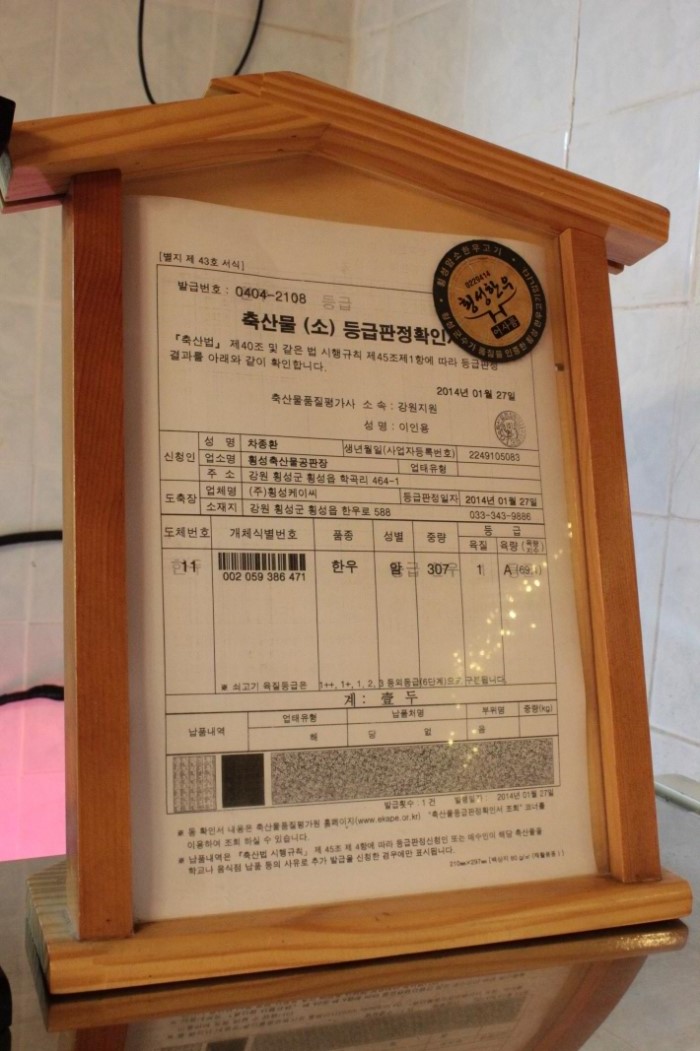 [별지 제 43호 서식]
발급번호 : 0404-2108 등급
축산물 (소) 등급판정확인
『축산법』 제40조 및 같은 법 시행규칙 제45조제1항에 따라 등급판정
결과를 아래와 같이 확인합니다.
횡성한우
2014년 01월 27일
축산물품질평가사 소 속 : 강원지원
성 명 : 이인용
신청인 성 명 차종환 생년월일(사업자등록번호) 2249105083
업소명 횡성축산물공판장 업태유형
주 소 강원 횡성군 횡성읍 학곡리 464-1
도축장 업체명 (주)횡성케이씨 등급판정일자 2014년 01월 27일
소재지 강원 횡성군 횡성읍 한우로 588 033-343-9886
도체번호 개체식별번호 품종 성별 중량 등 급
육질 육량
11 002 059 386 471 한우 암 307 1 A
※ 쇠고기 육질등급은 1++, 1+, 1, 2, 3 등외등급(6단계)으로 구분됩니다.
계 : 壹 두
납품내역 업태유형 납품처명 부위명 중량(kg)
해 당 없 음
발급횟수 : 1 건 발행일자 : 2014년 01월 27일
※ 동 확인서 내용은 축산물품질평가원 홈페이지(www.ekape.or.kr) "축산물등급판정확인서 조회" 코너를
이용하여 조회 하실 수 있습니다.
※ 납품내역은 『축산법 시행규칙』 제 45조 제 4항에 따라 등급판정신청인 또는 매수인이 해당 축산물을
학교나 음식점 납품 등의 사유로 추가 발급을 신청한 경우에만 표시됩니다.